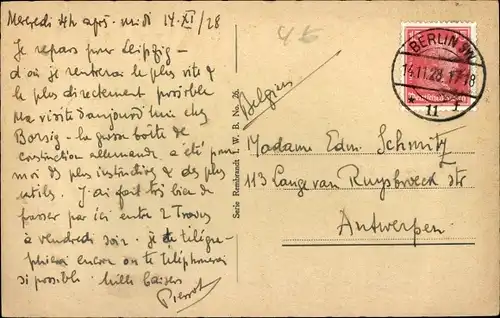 Mercredi 4h après-midi 14.XI/28
Je repars pour Leipzig –
d'où je rentrerai le plus vite &
le plus directement possible
Ma visite d'aujourd'hui chez
Borsig – la grosse boîte de
construction allemande a été pour
moi des plus instructives & des plus
utiles. J'ai fait très bien de
passer par ici entre 2
à vendredi soir. je télégra-
phierai encore ou te téléphonerai
si possible. Mille baisers
Pierrot
Serie Rembrandt W. B. No. 26.
Belgien
BERLIN SW
14.11.28. 17-18
* 11 f
Madame Edm. Schmitz
113 Lange van Ruysbroeck str
Antwerpen.